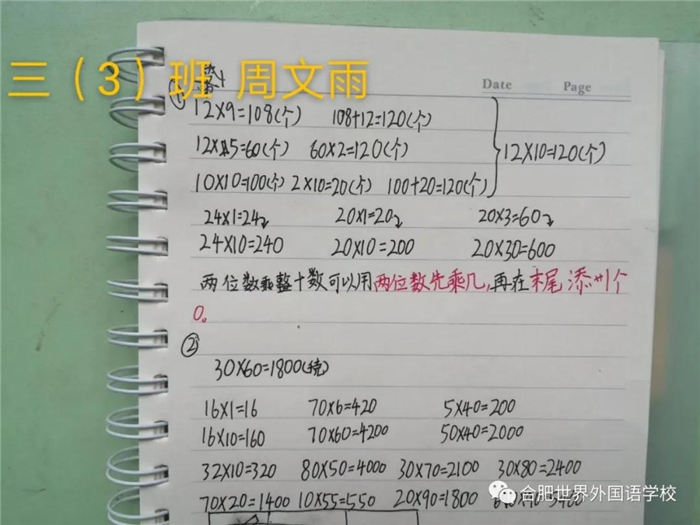 三（3）班 周文雨
Date Page
① 12×9=108(个) 108+12=120(个)
12×5=60(个) 60×2=120(个) 12×10=120(个)
10×10=100(个) 2×10=20(个) 100+20=120(个)
24×1=24 20×1=20 20×3=60
24×10=240 20×10=200 20×30=600
两位数乘整十数可以用两位数先乘几,再在末尾添个
0。
②
30×60=1800(克)
16×1=16 70×6=420 5×40=200
16×10=160 70×60=4200 50×40=2000
32×10=320 80×50=4000 30×70=2100 30×80=2400
70×20=1400 10×55=550 20×90=1800
合肥世界外国语学校